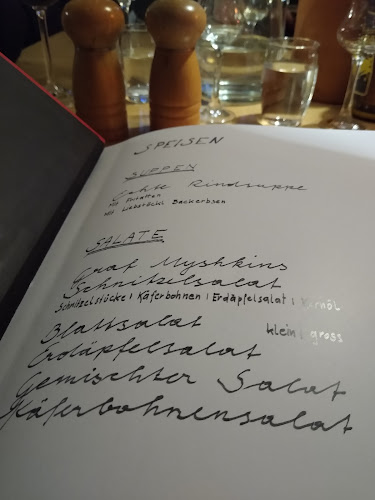 SPEISEN
SUPPEN
Echte Rindsuppe
mit Fritatten
mit Leberöckl Backerbsen
SALATE
Graf Myshkins
Schnitzelsalat
Schnitzelstücke | Käferbohnen | Erdäpfelsalat | Kernöl
klein | gross
Blattsalat
Erdäpfelsalat
Gemischter Salat
Käferbohnensalat